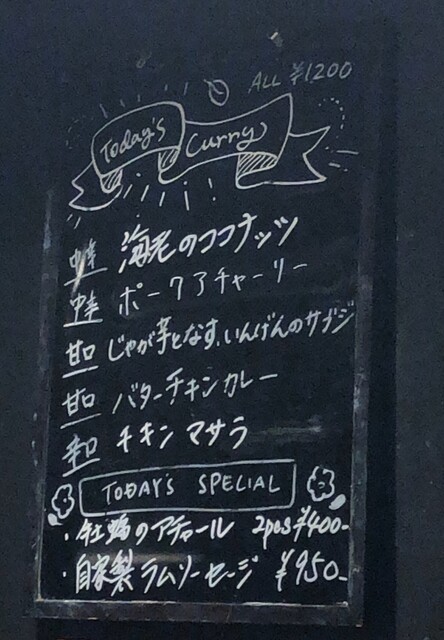 ALL ¥1200
Today's Curry
中辛 海老のココナッツ
中辛 ポークアチャーリー
甘口 じゃが芋となす、いんげんのサブジ
甘口 バターチキンカレー
辛口 チキンマサラ
TODAY'S SPECIAL
・牡蠣のアチャール 2pcs ¥400-
・自家製ラムソーセージ ¥950-